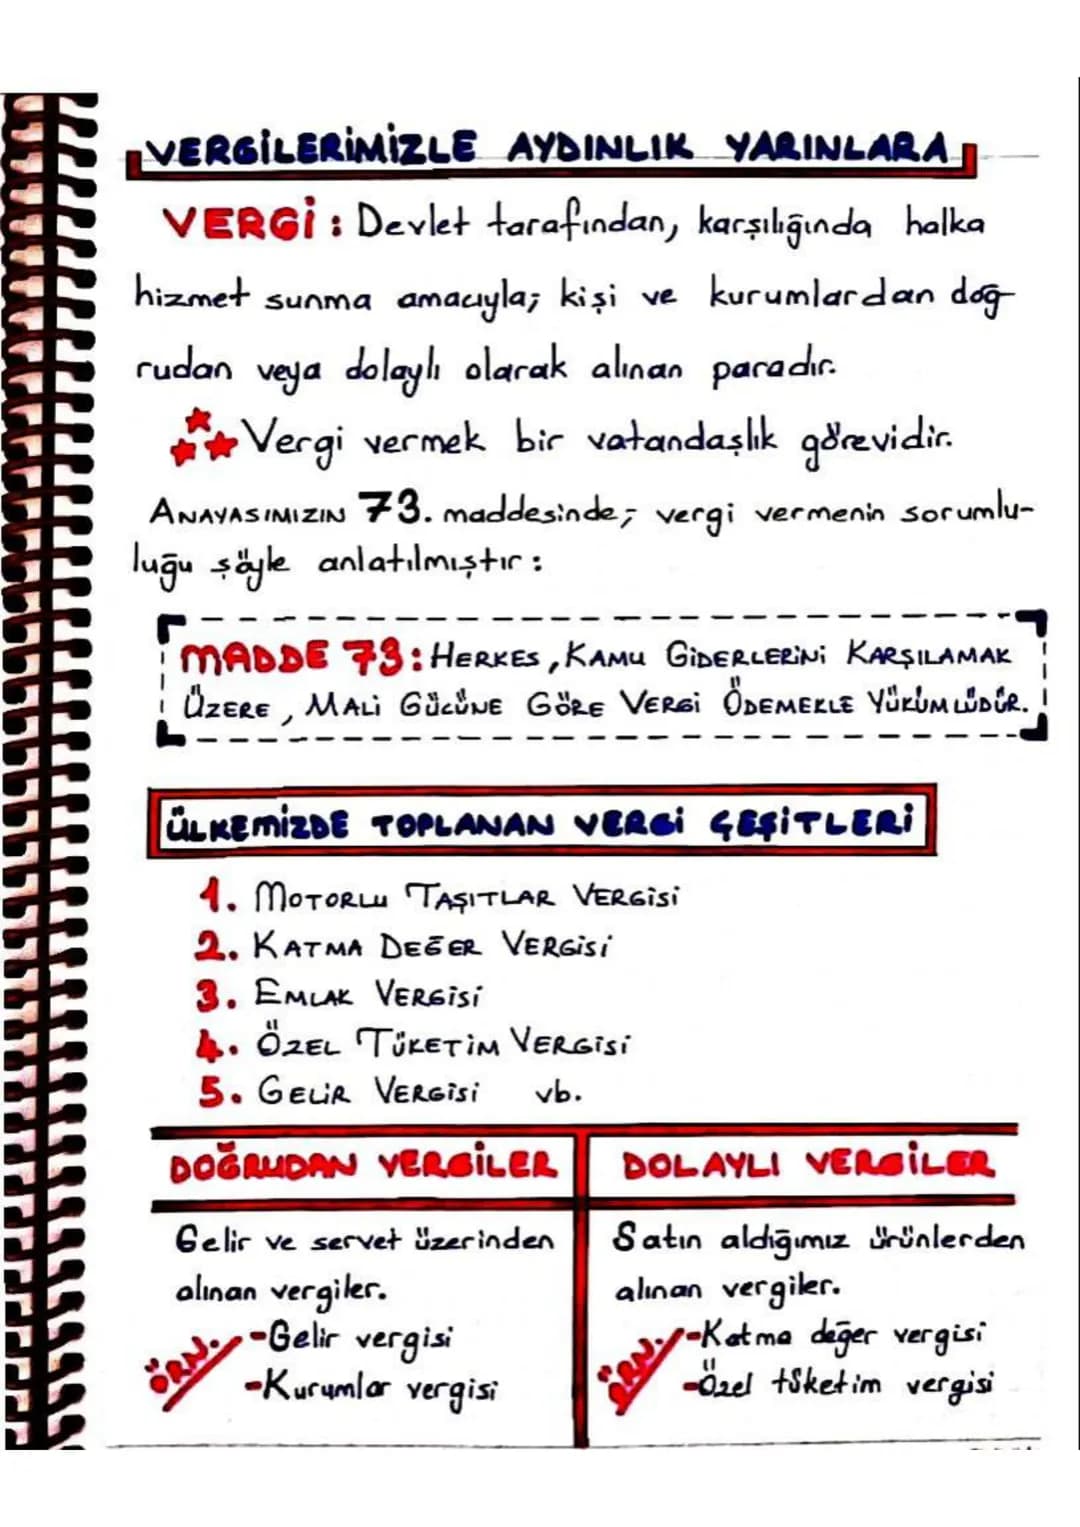 VERGİLERİMİZLE AYDINLIK YARINLARA
VERGİ: Devlet tarafından, karşılığında halka
hizmet sunma amacıyla; kişi ve kurumlardan doğ
rudan veya dolaylı olarak alınan paradır.
Vergi vermek bir vatandaşlık görevidir.
ANAYASIMIZIN 73. maddesinde; vergi vermenin sorumlu-
luğu şöyle anlatılmıştır:
MADDE 73: HERKES, KAMU GİDERLERİNİ KARŞILAMAK
ÜZERE, MALİ GÜCÜNE GÖRE VERGİ ÖDEMEKLE YÜKÜMLÜDÜR.
ÜLKEMİZDE TOPLANAN VERGİ ÇEŞİTLERİ
1. MOTORLU TAŞITLAR VERGİSİ
2. KATMA DEĞER VERGİSİ
3. EMLAK VERGİSİ
4. ÖZEL TÜKETİM VERGİSİ
5. GELİR VERGİSİ vb.
DOĞRUDAN VERGİLER
Gelir ve servet üzerinden
alınan vergiler.
ÖRN. -Gelir vergisi
-Kurumlar vergisi
DOLAYLI VERGİLER
Satın aldığımız ürünlerden
alınan vergiler.
ÖRN. -Katma değer vergisi
-Özel tüketim vergisi